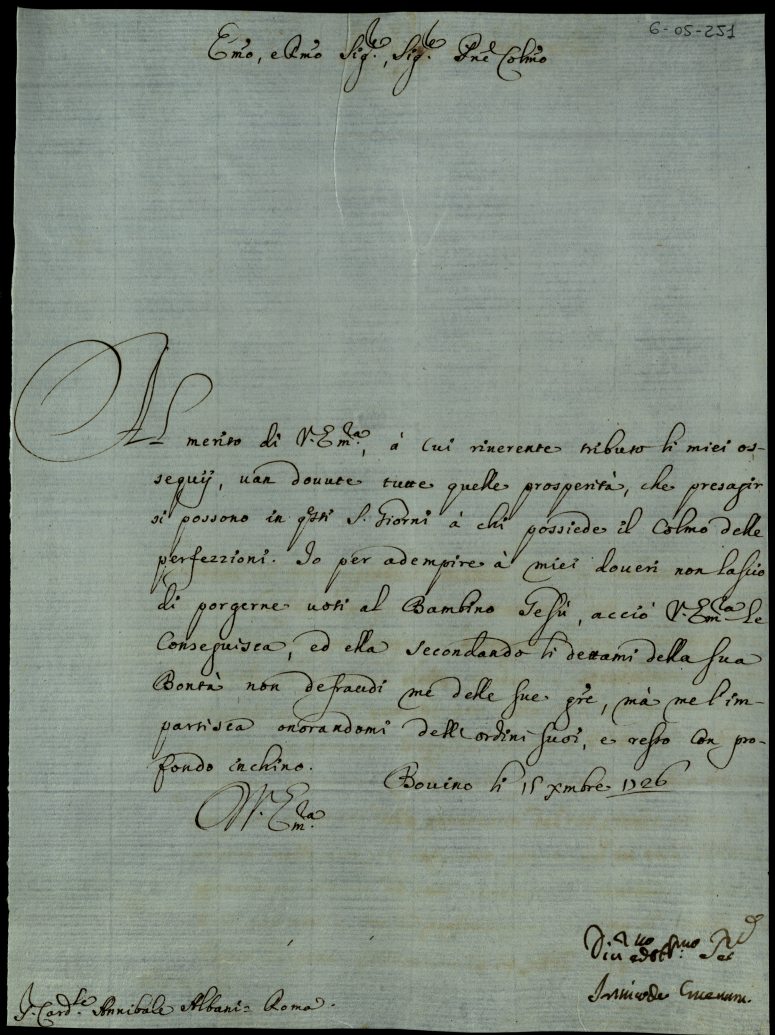 6-05-251
Emo, e Rmo Sig.re, Sig.re Pne Colmo
Al merito di V. Em.za, à cui riverente tributo li miei os-
sequij, van dovute tutte quelle prosperità, che presagir
si possono in qsti S. Giorni à chi possiede il Colmo delle
perfezzioni. Io per adempire à miei doveri non lascio
di porgerne voti al Bambino Gesù, acciò V. Em.za le
Conseguisca, ed ella secondando li dettami della sua
Bontà non defraudi me delle sue gre, mà me l'im-
partisca onorandomi dell'ordini suoi, e resto con pro-
fondo inchino.
Bovino li 15 Xmbre 1726
D. V. Em.za
S. Card.le Annibale Albani = Roma.